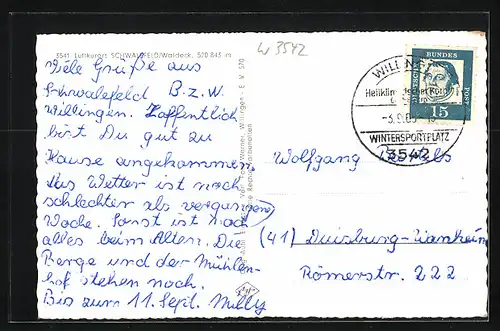 3541 Luftkurort SCHWALEFELD/Waldeck, 520-843 m
W 3542
Viele Grüße aus
Schwalefeld B.z.W.
Willingen. Hoffentlich
bist Du gut zu
Hause angekommen,
das Wetter ist noch
schlechter als vergangene
Woche. Sonst ist noch
alles beim Alten. Die
Berge und der Mühlen-
hof stehen noch.
Bis zum 11. Sept. Milly
WILLINGEN
Heilklimatischer Kurort
WINTERSPORTPLATZ
3542
DEUTSCHE BUNDESPOST
15
Wolfgang
(41) Duisburg-Wanheim
Römerstr. 222